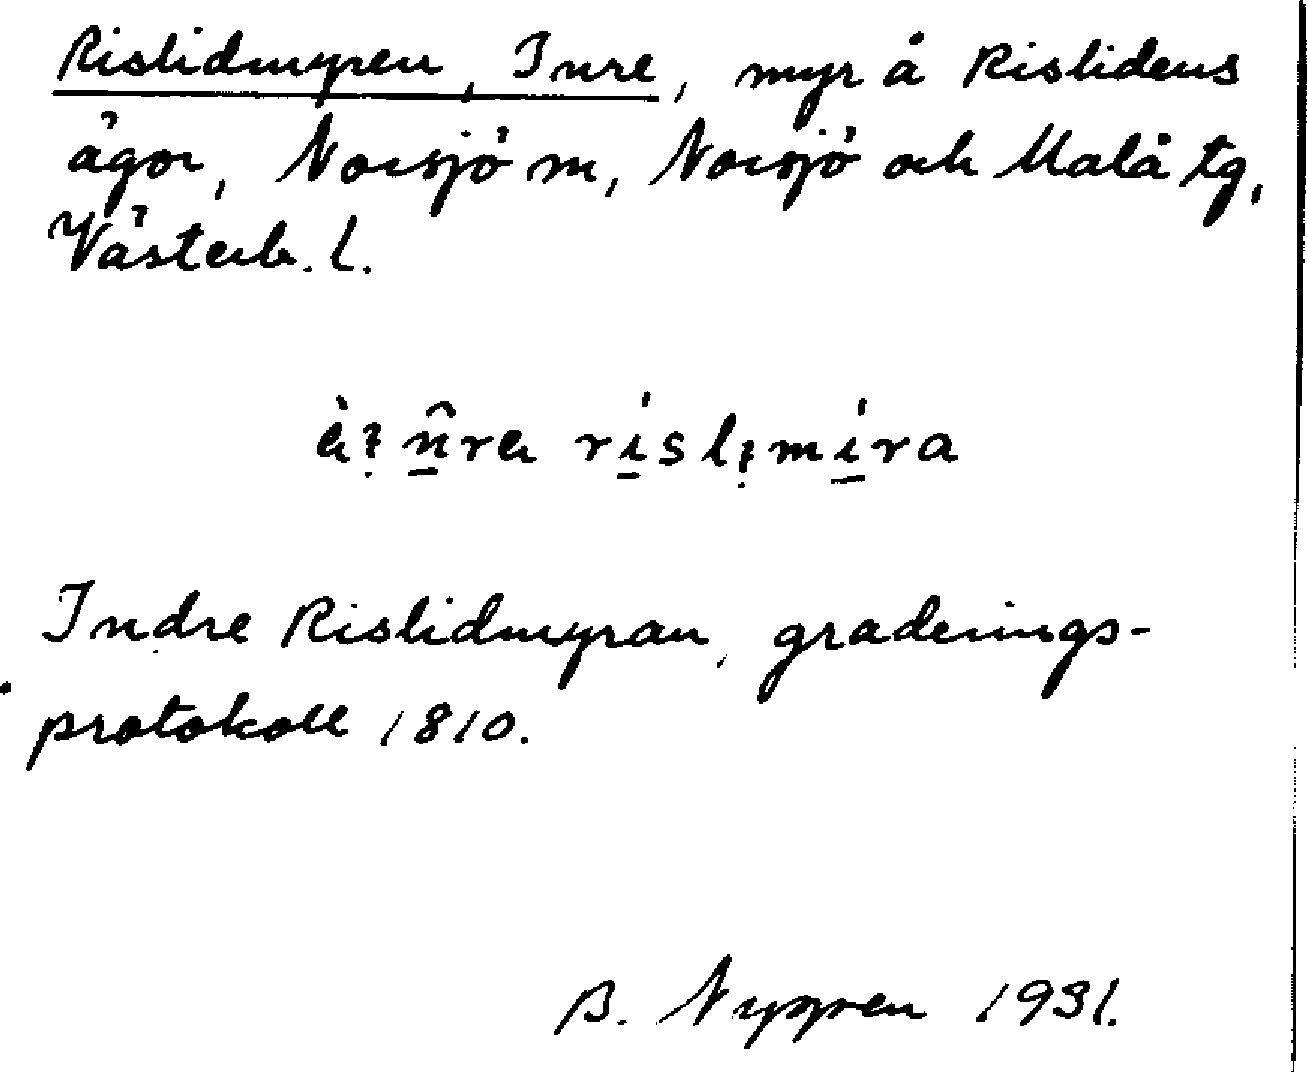 Rislidmyren, Inre, myr å Rislidens
ägor, Norsjö sn, Norsjö och Malå tg,
Västerb. l.
Indre Rislidmyran, graderings-
protokoll 1810.
B. Nygren 1931.